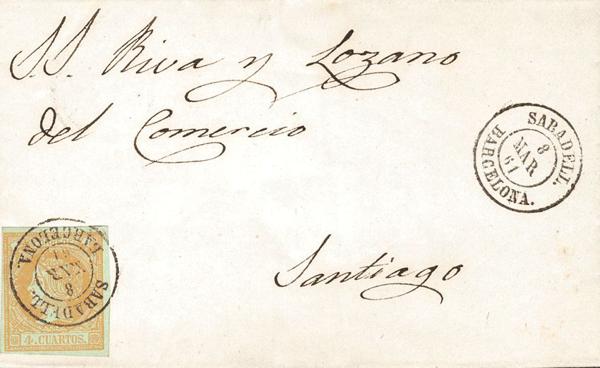 S.S. Riva y Lozano
del Comercio
SABADELL.
8
MAR
61
BARCELONA.
Santiago
SABADELL.
8
MAR
61
BARCELONA.
4 CUARTOS.